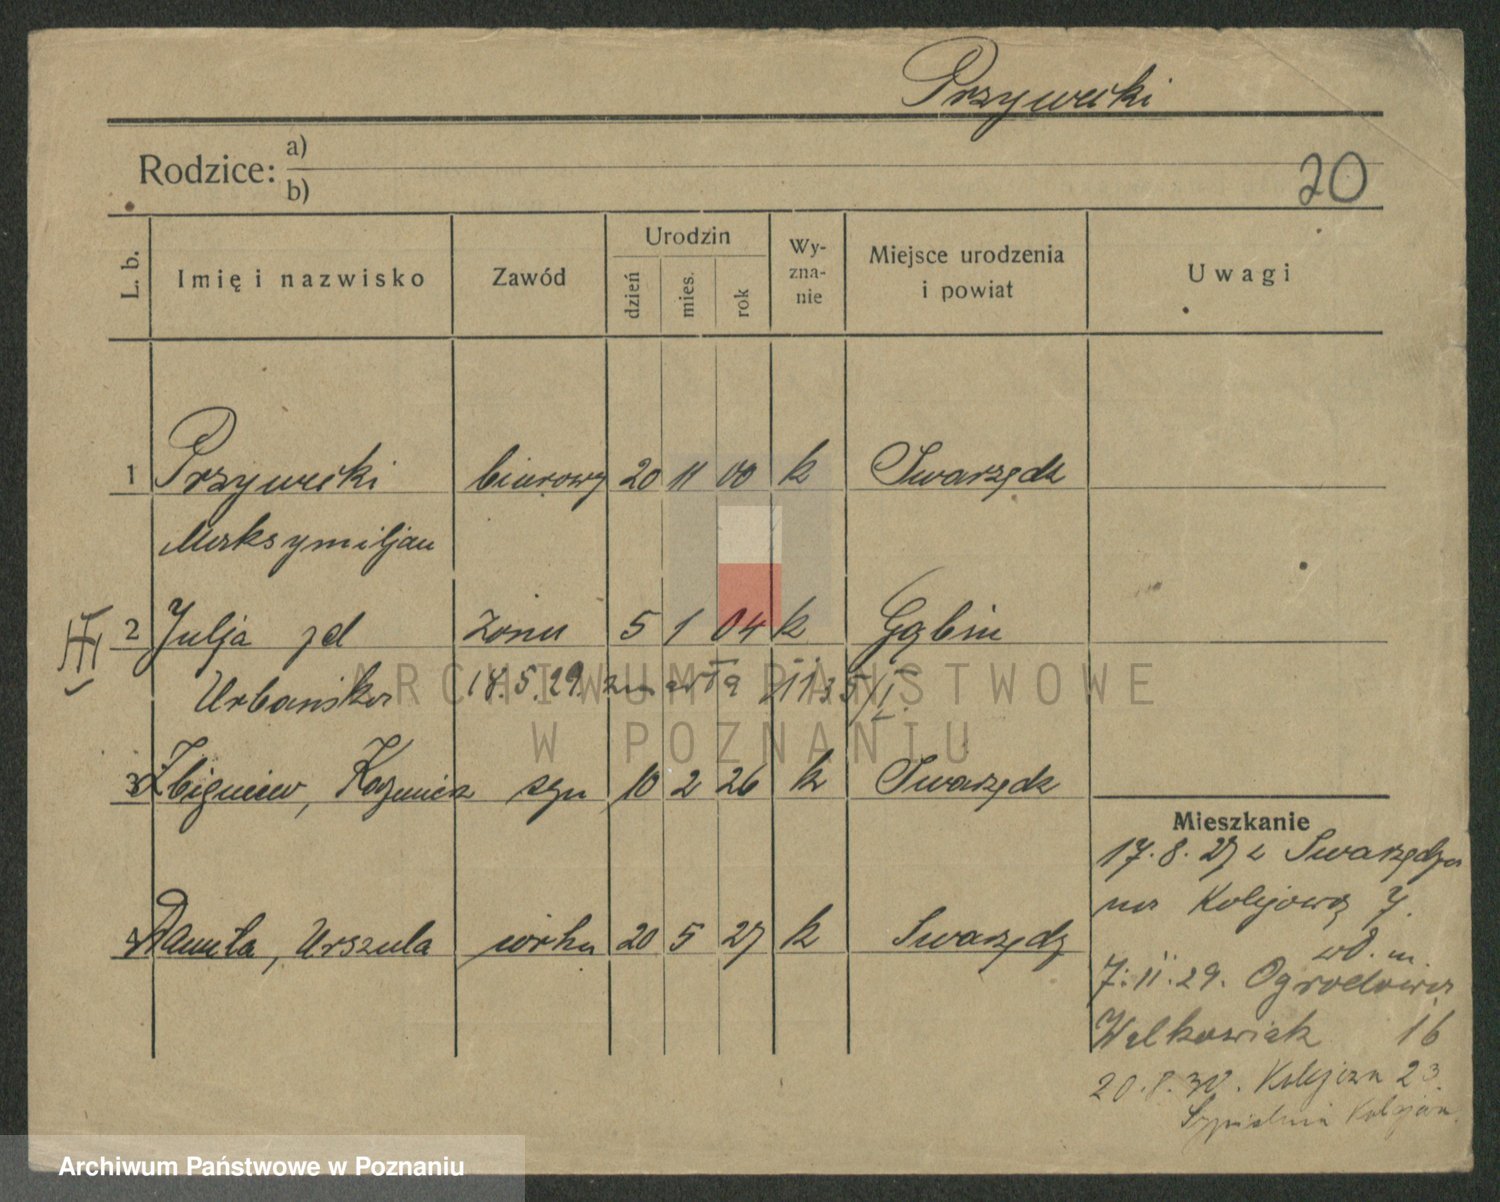 Przywecki
Rodzice: a)
b)
20
L. b. Imię i nazwisko Zawód Urodzin dzień mies. rok Wy-zna-nie Miejsce urodzenia i powiat Uwagi
1 Przywecki biurowy 20 11 00 k Swarzędz
Maksymiljan
III 2 Julja zd żona 5 1 04 k Gąbin
Urbańska 18.5.29. zmarła
ARCHIWUM PAŃSTWOWE
W POZNANIU
3 Zbigniew, Kazimierz syn 10 2 26 k Swarzędz
Mieszkanie
17.8.27 z Swarzędza
na Kolejową 7.
4 Danuta, Urszula córka 20 5 27 k Swarzędz
7.11.29. Ogrodowa
Walkowiak 16
20.8.30. 23
Archiwum Państwowe w Poznaniu